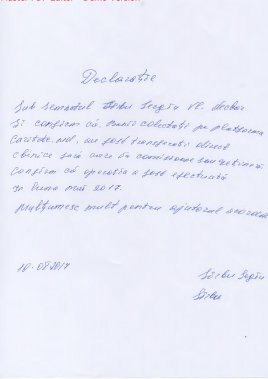 Master PDF Editor - Demo Version
Declarație
Sub semnatul Sîrbu Sergiu VL. declar
și confirm că, banii colectați pe platforma
caritate.md, au fost transferați direct
clinicii fără careva comisioane sau rețineri
Confirm că operația a fost efectuată
în luna mai 2017.
Mulțumesc mult pentru ajutorul acordat
10.07.2017
Sîrbu Sergiu
Sîrbu